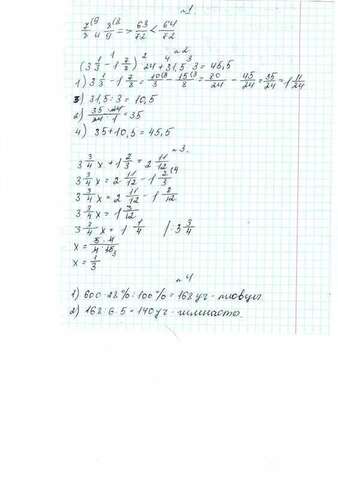 №1
7/8 и 8/9 => 63/72 < 64/72
№2
(3 1/3 - 1 7/8) · 24 + 31,5 : 3 = 45,5
1) 3 1/3 - 1 7/8 = 10/3 - 15/8 = 80/24 - 45/24 = 35/24 = 1 11/24
3) 31,5 : 3 = 10,5
2) 35·24/24·1 = 35
4) 35 + 10,5 = 45,5
№3
3 3/4 x + 1 2/3 = 2 11/12
3 3/4 x = 2 11/12 - 1 2/3
3 3/4 x = 2 11/12 - 1 8/12
3 3/4 x = 1 3/12
3 3/4 x = 1 1/4 /: 3 3/4
x = 5·4/4·15
x = 1/3
№4
1) 600·28% : 100% = 168 уч - пловцы
2) 168 : 6·5 = 140 уч - гимнасты.